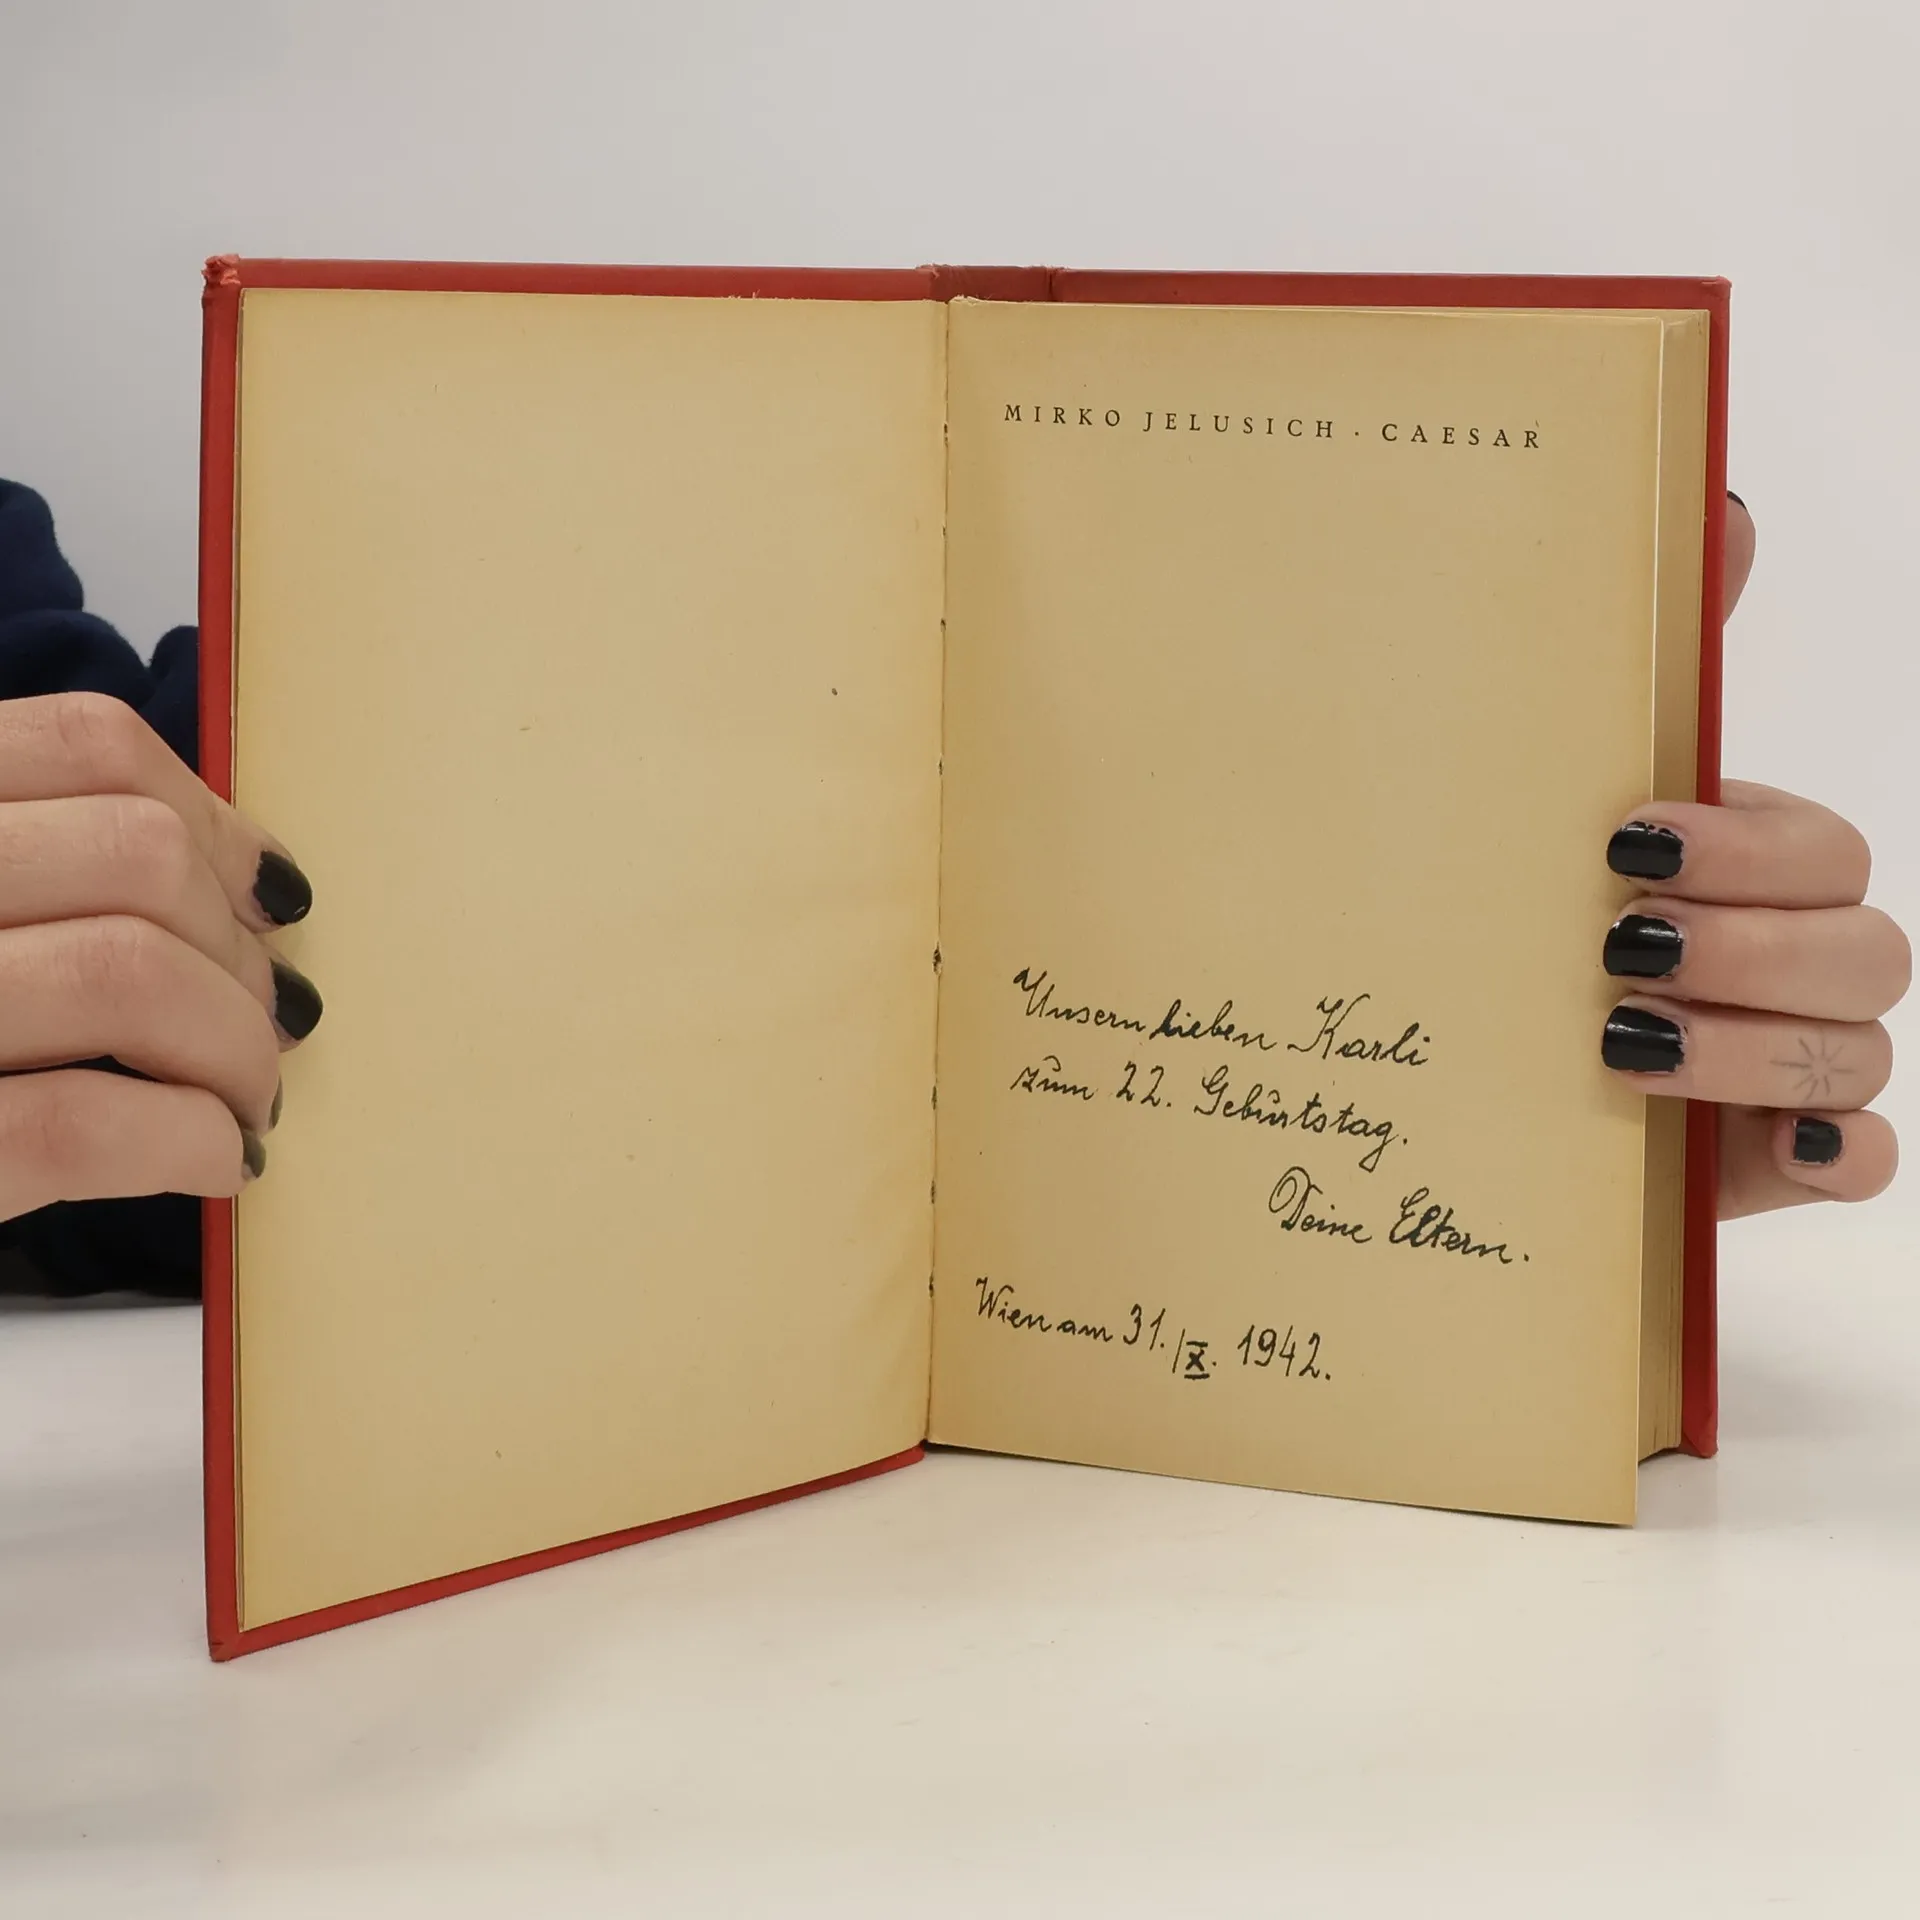 MIRKO JELUSICH · CAESAR
Unsern lieben Karli
zum 22. Geburtstag.
Deine Eltern.
Wien am 31./X. 1942.